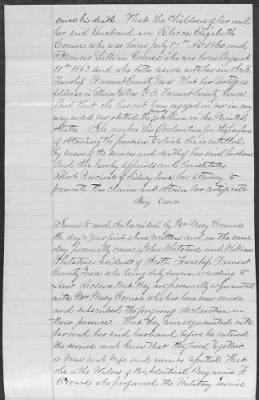 since his death. That the Children of her and
her said Husband are Rebecca Elizabeth
who was born July 17th AD 1860 and
Francis William who was born August
18th 1863 and who both reside with her in
Township Fremont County Iowa That her Post Office
address is P.O. Fremont County Iowa
And that she has not been engaged in nor in any
way aided or abetted the rebellion in the United
States. She makes this declaration for the purpose
of obtaining the pension to which she is entitled
by reason of the services and death of her said husband
And she hereby appoints and Constitutes
of Sidney Iowa her attorney to
prosecute this claim and obtain her certificate
Mary
Sworn to and subscribed by Mrs Mary
the day & year first above written and on the same
day personally came John and William
residents of Township Fremont
County Iowa who being duly sworn according to
Law declare that they are personally acquainted
with Mrs Mary who has here now made
and subscribed the foregoing declaration in
their presence That they were acquainted with
her and her said husband before he entered
the service and know that they lived together
as Man & wife and were so reputed That
she is the Widow of the identical Benjamin F
who performed the Military service